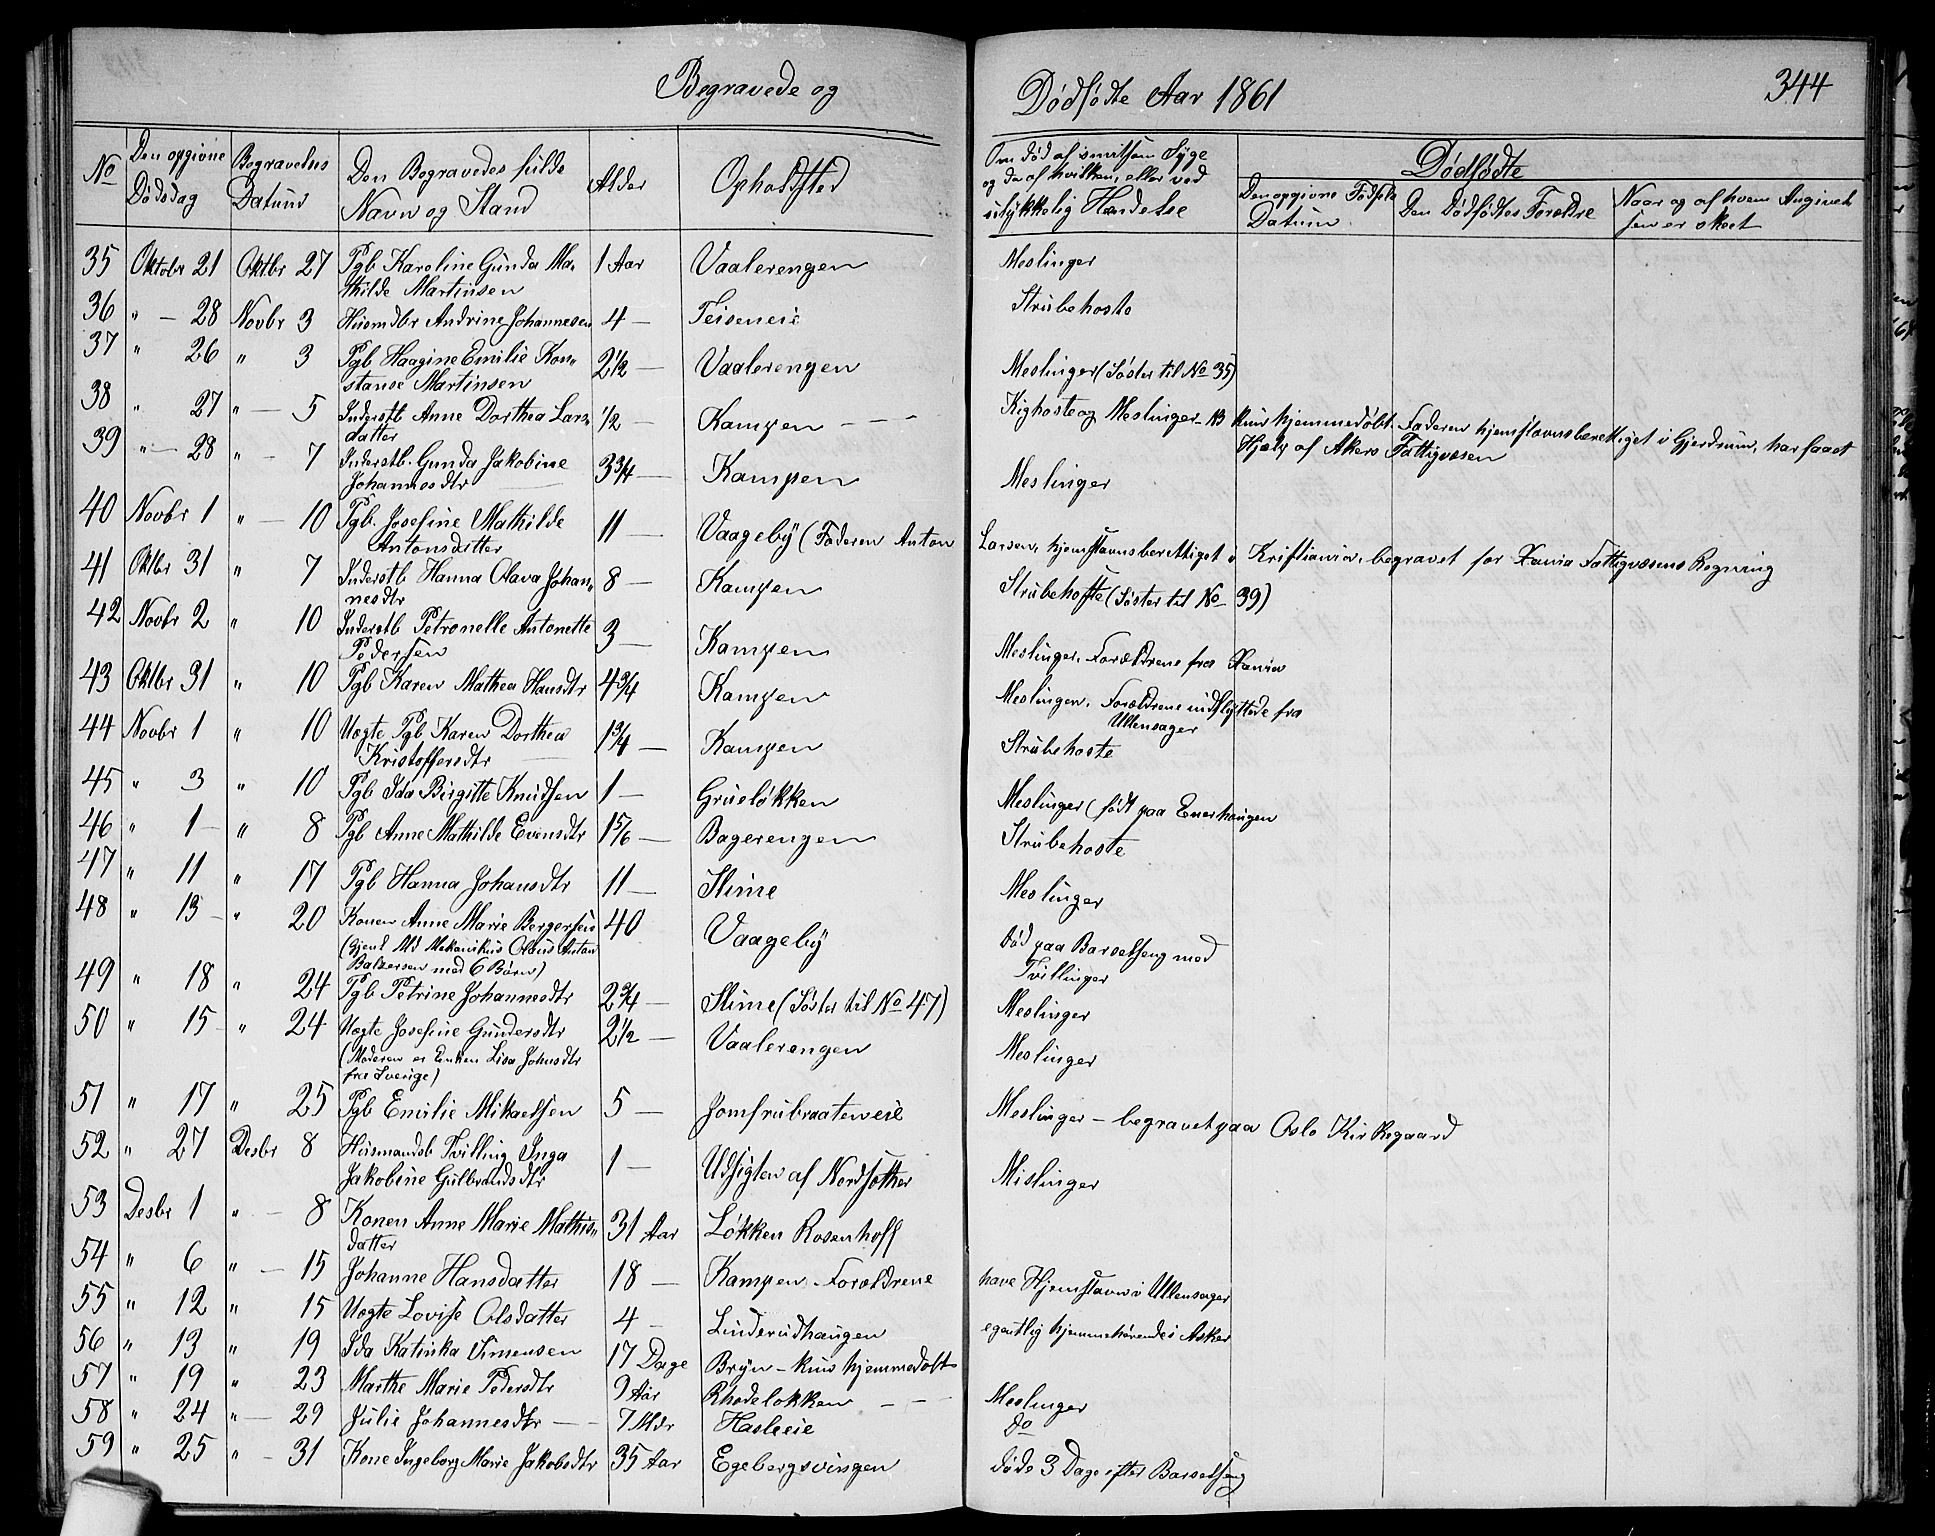 Begravede og
Dødfødte Aar 1861
344
No
Den opgivne Dødsdag
Begravelses Datum
Den Begravedes fulde Navn og Stand
Alder
Opholdsted
Om død af smitsom Syge og da af hvilken, eller ved ulykkelig Hændelse
Dødfødte
Den opgivne Fødsels Datum
Den Dødfødtes Forældre
Naar og af hvem Angivelsen er skeet
35 Oktober 21 Oktbr 27 Pgb Karoline Gunda Ma- 1 Aar Vaalerengen Meslinger
thilde Martinsen
36 " — 28 Novbr 3 Husmdbr Andrine Johannesen 4 — Teiseneie Strubehoste
37 " 26 " 3 Pgb Haagine Emilie Kon- 2 1/2 — Vaalerengen Meslinger (Søster til No 35)
stanse Martinsen
38 " 27 " — 5 Inderstb Anne Dorthea Lars- 1/2 — Kampen — — Kighoste og Meslinger NB kun hjemmedøbt. Faderen hjemstavnsberettiget i Gjerdrum, har faaet
datter Hjælp af Akers Fattigvæsen
39 " — 28 " — 7 Inderstb. Gunda Jakobine 3 3/4 — Kampen Meslinger
Johannesdtr
40 Novbr 1 " — 10 Pgb. Josefine Mathilde 11 — Vaageby (Faderen Anton Larsen, hjemstavnsberettiget i Kristiania, begravet for Xania Fattigvæsens Regning
Antonsdatter
41 Oktbr 31 " 7 Inderstb Hanna Olava Johan- 8 — Kampen Strubehoste (Søster til No 39)
nesdtr
42 Novbr 2 " 10 Inderstb Petronelle Antonette 3 — Kampen Meslinger. Forældrene fra Xania
Pedersen
43 Oktbr 31 " 10 Pgb Karen Mathea Hansdtr 4 3/4 Kampen Meslinger. Forældrene indflyttede fra
Ullensager
44 Novbr 1 " 10 Uægte Pgb Karen Dorthea 1 3/4 — Kampen Strubehoste
Kristoffersdtr
45 " 3 " 10 Pgb Ida Birgitte Knudsen 1 — Grueløkken Meslinger (født paa Enerhaugen
46 " 1 — " 8 Pgb Anne Mathilde Evensdtr 1 5/6 — Bagerengen Strubehoste
47 " 11 " 17 Pgb Hanna Johansdtr 11 — Stime Meslinger
48 " 13 — " 20 Konen Anne Marie Bergersen 40 Vaageby død paa Barselseng med
(Gjenl Md Mekanikus Olaus Anton Tvillinger
Balzersen med 6 Børn)
49 " 18 " 24 Pgb Petrine Johannesdtr 2 3/4 — Stime (Søster til No 47) Meslinger
50 " 15 — " 24 Uægte Josefine Gundersdtr 2 1/2 — Vaalerengen Meslinger
(Moderen er Enken Lisa Johnsdtr
fra Sverige)
51 " 17 " 25 Pgb Emilie Mikaelsen 5 — Jomfrubraateneie Meslinger — begravet paa Oslo Kirkegaard
52 " 27 Desbr 8 Husmandsb Tvilling Inga 1 — Udsigten af Nordsother Mislinger
Jakobine Gulbrandsdtr
53 Desbr 1 " — 8 Konen Anne Marie Mathis- 31 Aar Løkken Rosenhoff
datter
54 " 6 " — 15 Johanne Hansdatter 18 — Kampen Forældrene have Hjemstavn i Ullensager
55 " 12 " 15 Uægte Lovise Olsdatter 4 — Linderudhaugen egentlig hjemmehørende i Asker
56 " 13 " 19 Ida Katinka Simensen 17 Dage Bryn — kun hjemmedøbt
57 " 19 " 23 Marthe Marie Pedersdtr 9 Aar Rhodeløkken — — Meslinger
58 " 24 " — 29 Julie Johannesdtr — — 7 Mdr Hasleeie do
59 " 25 " — 31 Kone Ingeborg Marie Jakobsdtr 35 Aar Egebergsvingen døde 3 Dage efter Barselseng